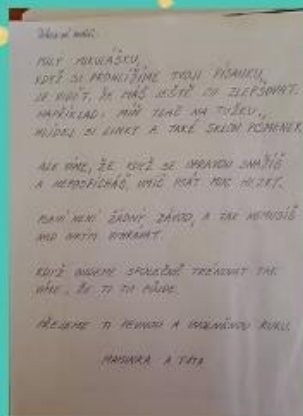 MILÝ MIKULÁŠKU,
KDYŽ SI PROHLÍŽÍME TVOJI PÍSANKU,
JE VIDĚT, ŽE MÁŠ JEŠTĚ CO ZLEPŠOVAT.
NAPŘÍKLAD: MÍŇ TLAČ NA TUŽKU,
HLÍDEJ SI LINKY A TAKÉ SKLON PÍSMENEK.
ALE VÍME, ŽE KDYŽ SE OPRAVDU SNAŽÍŠ
A NEPOSPÍCHÁŠ, UMÍŠ PSÁT MOC HEZKY.
PSANÍ NENÍ ŽÁDNÝ ZÁVOD, A TAK NEMUSÍŠ
NAD NIKÝM VYHRÁVAT.
KDYŽ BUDEME SPOLEČNĚ TRÉNOVAT TAK
VÍME, ŽE TI TO PŮJDE.
PŘEJEME TI PEVNOU A UVOLNĚNOU RUKU.
MAMINKA A TÁTA